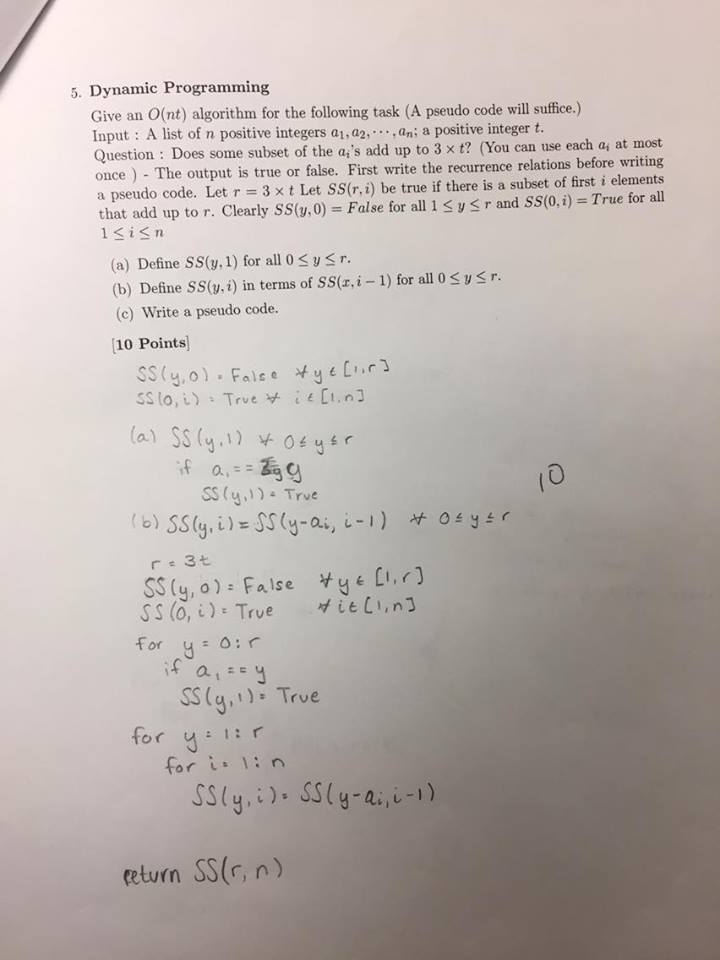 5. Dynamic Programming
Give an O(nt) algorithm for the following task (A pseudo code will suffice.)
Input : A list of n positive integers a₁, a₂, ⋯ , aₙ; a positive integer t.
Question : Does some subset of the aᵢ's add up to 3 × t? (You can use each aᵢ at most
once ) - The output is true or false. First write the recurrence relations before writing
a pseudo code. Let r = 3 × t Let SS(r, i) be true if there is a subset of first i elements
that add up to r. Clearly SS(y, 0) = False for all 1 ≤ y ≤ r and SS(0, i) = True for all
1 ≤ i ≤ n
(a) Define SS(y, 1) for all 0 ≤ y ≤ r.
(b) Define SS(y, i) in terms of SS(x, i − 1) for all 0 ≤ y ≤ r.
(c) Write a pseudo code.
[10 Points]
SS(y,0) = False ∀ y ∈ [1,r]
SS(0,i) = True ∀ i ∈ [1,n]
(a) SS(y,1) ∀ 0≤y≤r
if a₁ == y
SS(y,1) = True
10
(b) SS(y,i) = SS(y-aᵢ, i-1) ∀ 0≤y≤r
r = 3t
SS(y,0) = False ∀ y ∈ [1,r]
SS(0,i) = True ∀ i ∈ [1,n]
for y = 0:r
if a₁ == y
SS(y,1) = True
for y = 1:r
for i = 1:n
SS(y,i) = SS(y-aᵢ,i-1)
return SS(r,n)